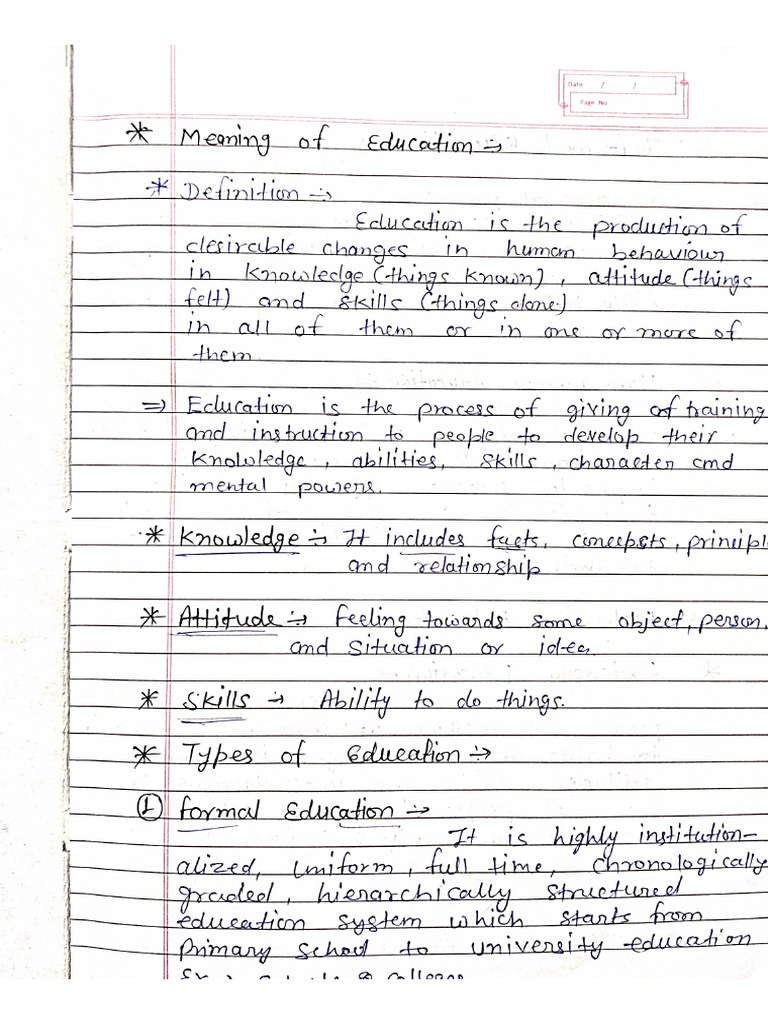 Date / /
Page No
* Meaning of Education :→
* Definition :→
Education is the production of
desirable changes in human behaviour
in knowledge (things known), attitude (things
felt) and skills (things done)
in all of them or in one or more of
them
⇒ Education is the process of giving of training
and instruction to people to develop their
knowledge, abilities, skills, character and
mental powers.
* Knowledge :→ It includes facts, concepts, principl
and relationship
* Attitude :→ feeling towards some object, person,
and situation or idea
* Skills → Ability to do things.
* Types of Education :→
① formal Education :→
It is highly institution-
alized, uniform, full time, chronologically
graded, hierarchically structured
education system which starts from
primary school to university education